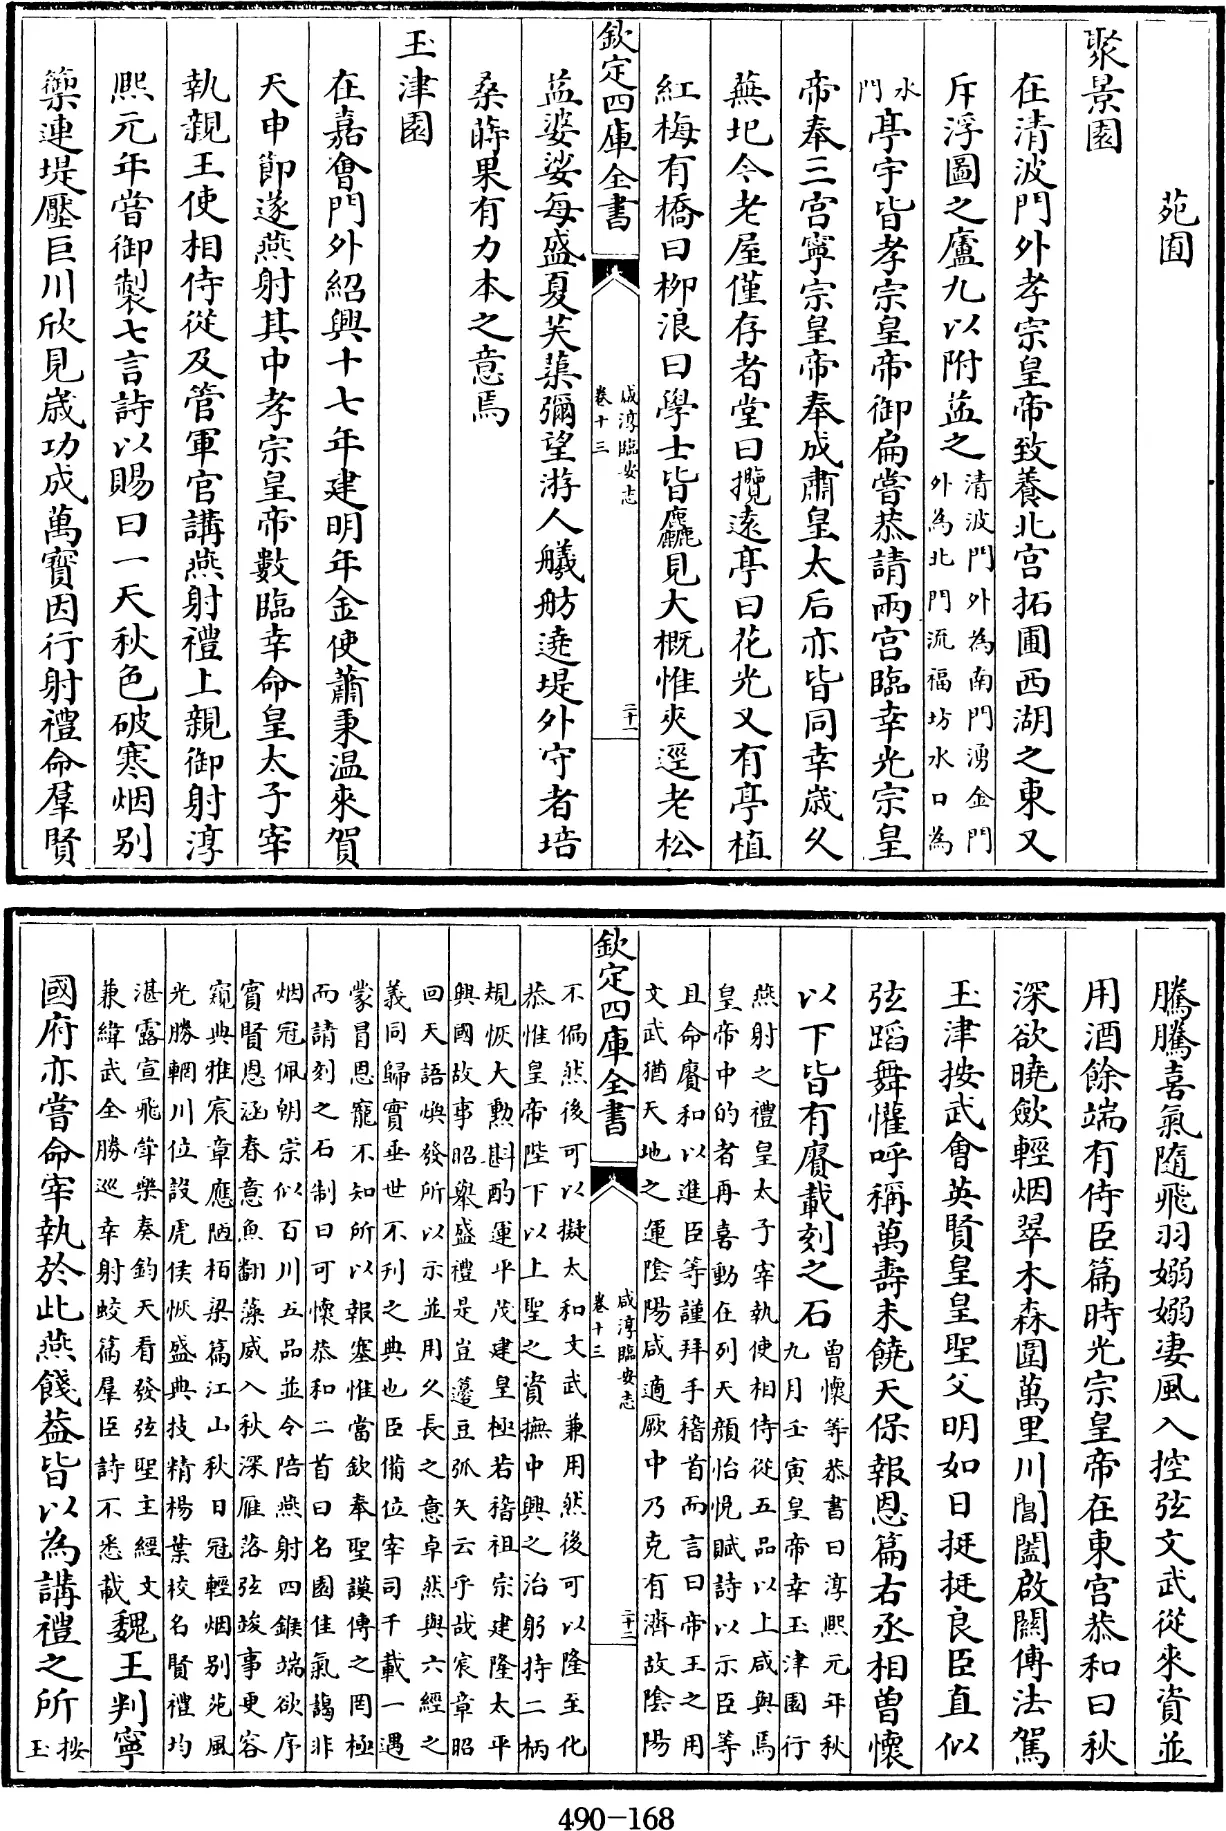 苑囿
聚景園
在清波門外孝宗皇帝致養北宫拓圃西湖之東又
斥浮圖之廬九以附益之清波門外為南門湧金門
外為北門流福坊水口為
水
門
亭宇皆孝宗皇帝御扁嘗恭請兩宫臨幸光宗皇
帝奉三宫寧宗皇帝奉成肅皇太后亦皆同幸歳久
蕪圮今老屋僅存者堂曰攬遠亭曰花光又有亭植
紅梅有橋曰栁浪曰學士皆麤見大概惟夾逕老松
欽定四庫全書
咸淳臨安志
卷十三
二十一
益婆娑每盛夏芙蕖彌望游人艤舫遶堤外守者培
桑蒔果有力本之意焉
玉津園
在嘉㑹門外紹興十七年建明年金使蕭秉温來賀
天申節遂燕射其中孝宗皇帝數臨幸命皇太子宰
執親王使相侍從及管軍官講燕射禮上親御射淳
熙元年嘗御製七言詩以賜曰一天秋色破寒烟别
籞連堤壓巨川欣見歳功成萬寳因行射禮命羣賢
騰騰喜氣隨飛羽嫋嫋凄風入控弦文武從來資並
用酒餘端有侍臣篇時光宗皇帝在東宫恭和曰秋
深欲曉歛輕烟翠木森圍萬里川閶闔啟闗傳法駕
玉津按武㑹英賢皇皇聖父明如日挺挺良臣直似
弦蹈舞懽呼稱萬壽未饒天保報恩篇右丞相曽懷
以下皆有賡載刻之石曽懐等恭書曰淳熙元年秋
九月壬寅皇帝幸玉津園行
燕射之禮皇太子宰執使相侍從五品以上咸與焉
皇帝中的者再喜動在列天顔怡悦賦詩以示臣等
且命賡和以進臣等謹拜手稽首而言曰帝王之用
文武猶天地之運隂陽咸適厥中乃克有濟故隂陽
欽定四庫全書
咸淳臨安志
卷十三
二十二
不偏然後可以擬太和文武兼用然後可以隆至化
恭惟皇帝陛下以上聖之資撫中興之治躬持二柄
規恢大勲斟酌運平茂建皇極若稽祖宗建隆太平
興國故事昭舉盛禮是豈籩豆弧矢云乎哉宸章昭
回天語煥發所以示並用久長之意卓然與六經之
義同歸實垂世不刋之典也臣備位宰司千載一遇
蒙冒恩寵不知所以報塞惟當欽奉聖謨傳之罔極
而請刻之石制曰可懐恭和二首曰名園佳氣靄非
烟冠佩朝宗似百川五品並令陪燕射四鍭端欲序
賔賢恩涵春意魚翻藻威入秋深雁落弦竣事更容
窺典雅宸章應陋栢梁篇江山秋日冠輕烟别苑風
光勝輞川位設虎侯恢盛典技精楊葉校名賢禮均
湛露宣飛斝樂奏鈞天看發弦聖主經文
兼緯武全勝巡幸射蛟篇羣臣詩不悉載
魏王判寧
國府亦嘗命宰執於此燕餞葢皆以為講禮之所按
玉
490-168